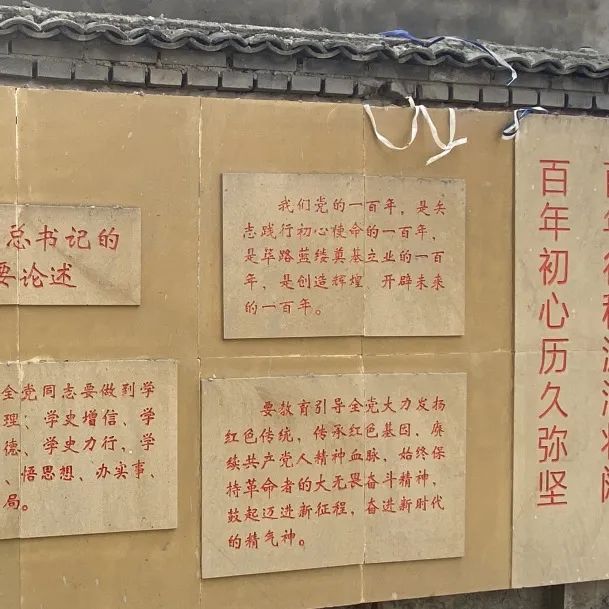 总书记的
要论述
我们党的一百年，是矢
志践行初心使命的一百年，
是筚路蓝缕奠基立业的一百
年，是创造辉煌、开辟未来
的一百年。
全党同志要做到学
理、学史增信、学
德、学史力行、学
、悟思想、办实事、
局。
要教育引导全党大力发扬
红色传统、传承红色基因，赓
续共产党人精神血脉，始终保
持革命者的大无畏奋斗精神，
鼓起迈进新征程、奋进新时代
的精气神。
百年初心历久弥坚